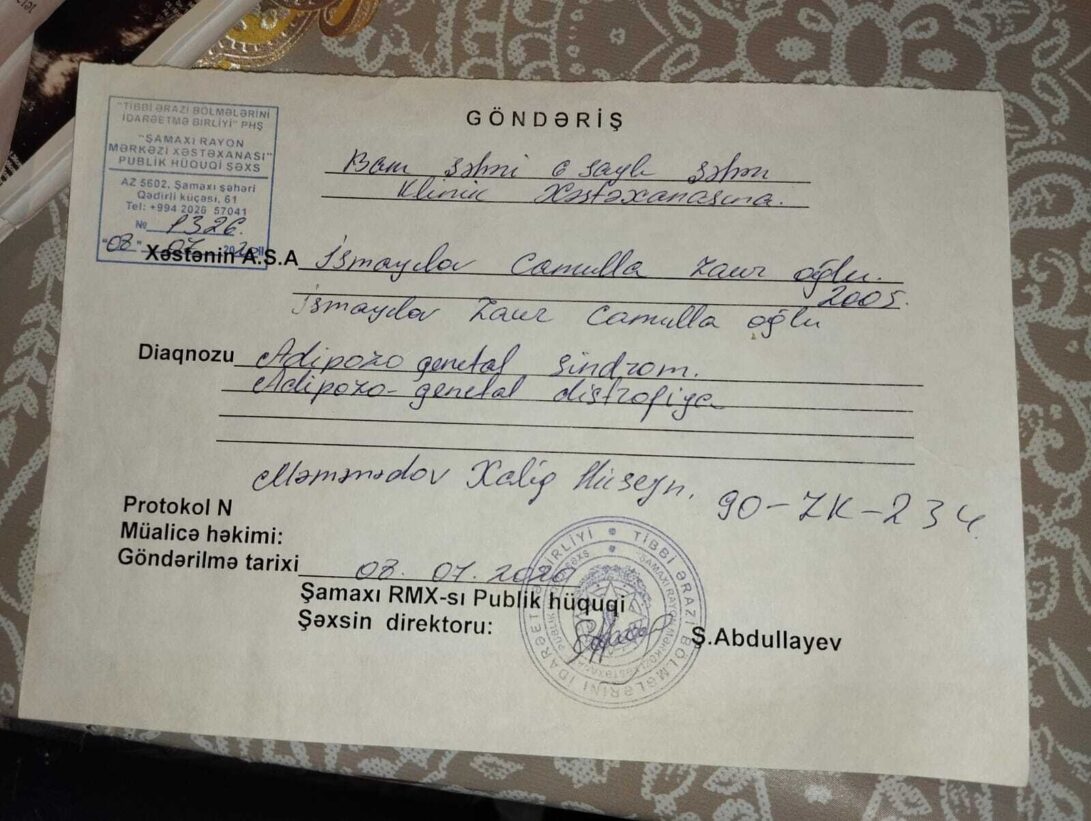 GÖNDƏRİŞ
"TİBBİ ƏRAZİ BÖLMƏLƏRİNİ
İDARƏETMƏ BİRLİYİ" PHŞ
"ŞAMAXI RAYON
MƏRKƏZİ XƏSTƏXANASI"
PUBLİK HÜQUQİ ŞƏXS
AZ 5602, Şamaxı şəhəri
Qədirli küçəsi, 61
Tel: +994 2026 57041
№ 1326
"08" 07 2020
Bakı şəhəri 6 saylı şəhər
Klinik Xəstəxanasına.
Xəstənin A.S.A İsmayılov Camulla Zaur oğlu.
2005.
İsmayılov Zaur Camulla oğlu
Diaqnozu Adipozo genetal sindrom.
Adipozo-genetal distrofiya
Məmmədov Xaliq Hüseyn, 90-ZK-234
Protokol N
Müalicə həkimi:
Göndərilmə tarixi 08. 07. 2020
Şamaxı RMX-sı Publik hüquqi
Şəxsin direktoru: Ş.Abdullayev
TİBBİ ƏRAZİ BÖLMƏLƏRİNİ İDARƏETMƏ BİRLİYİ